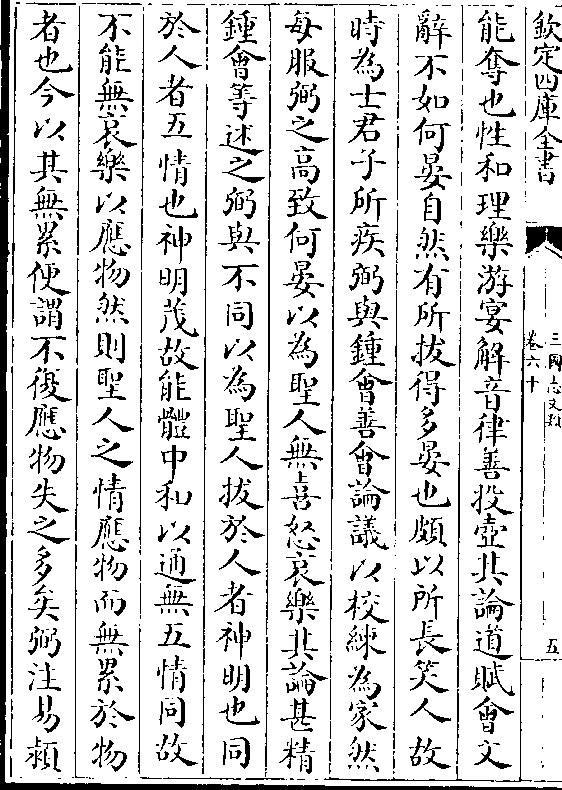 欽定四庫全書
三國志文類
卷六十
五
能奪也性和理樂游宴解音律善投壺其論道賦會文
辭不如何晏自然有所拔得多晏也頗以所長笑人故
時為士君子所疾弼與鍾會善會論議以校練為家然
每服弼之高致何晏以為聖人無喜怒哀樂其論甚精
鍾會等述之弼與不同以為聖人拔於人者神明也同
於人者五情也神明茂故能體中和以通無五情同故
不能無哀樂以應物然則聖人之情應物而無累於物
者也今以其無累便謂不復應物失之多矣弼注易潁